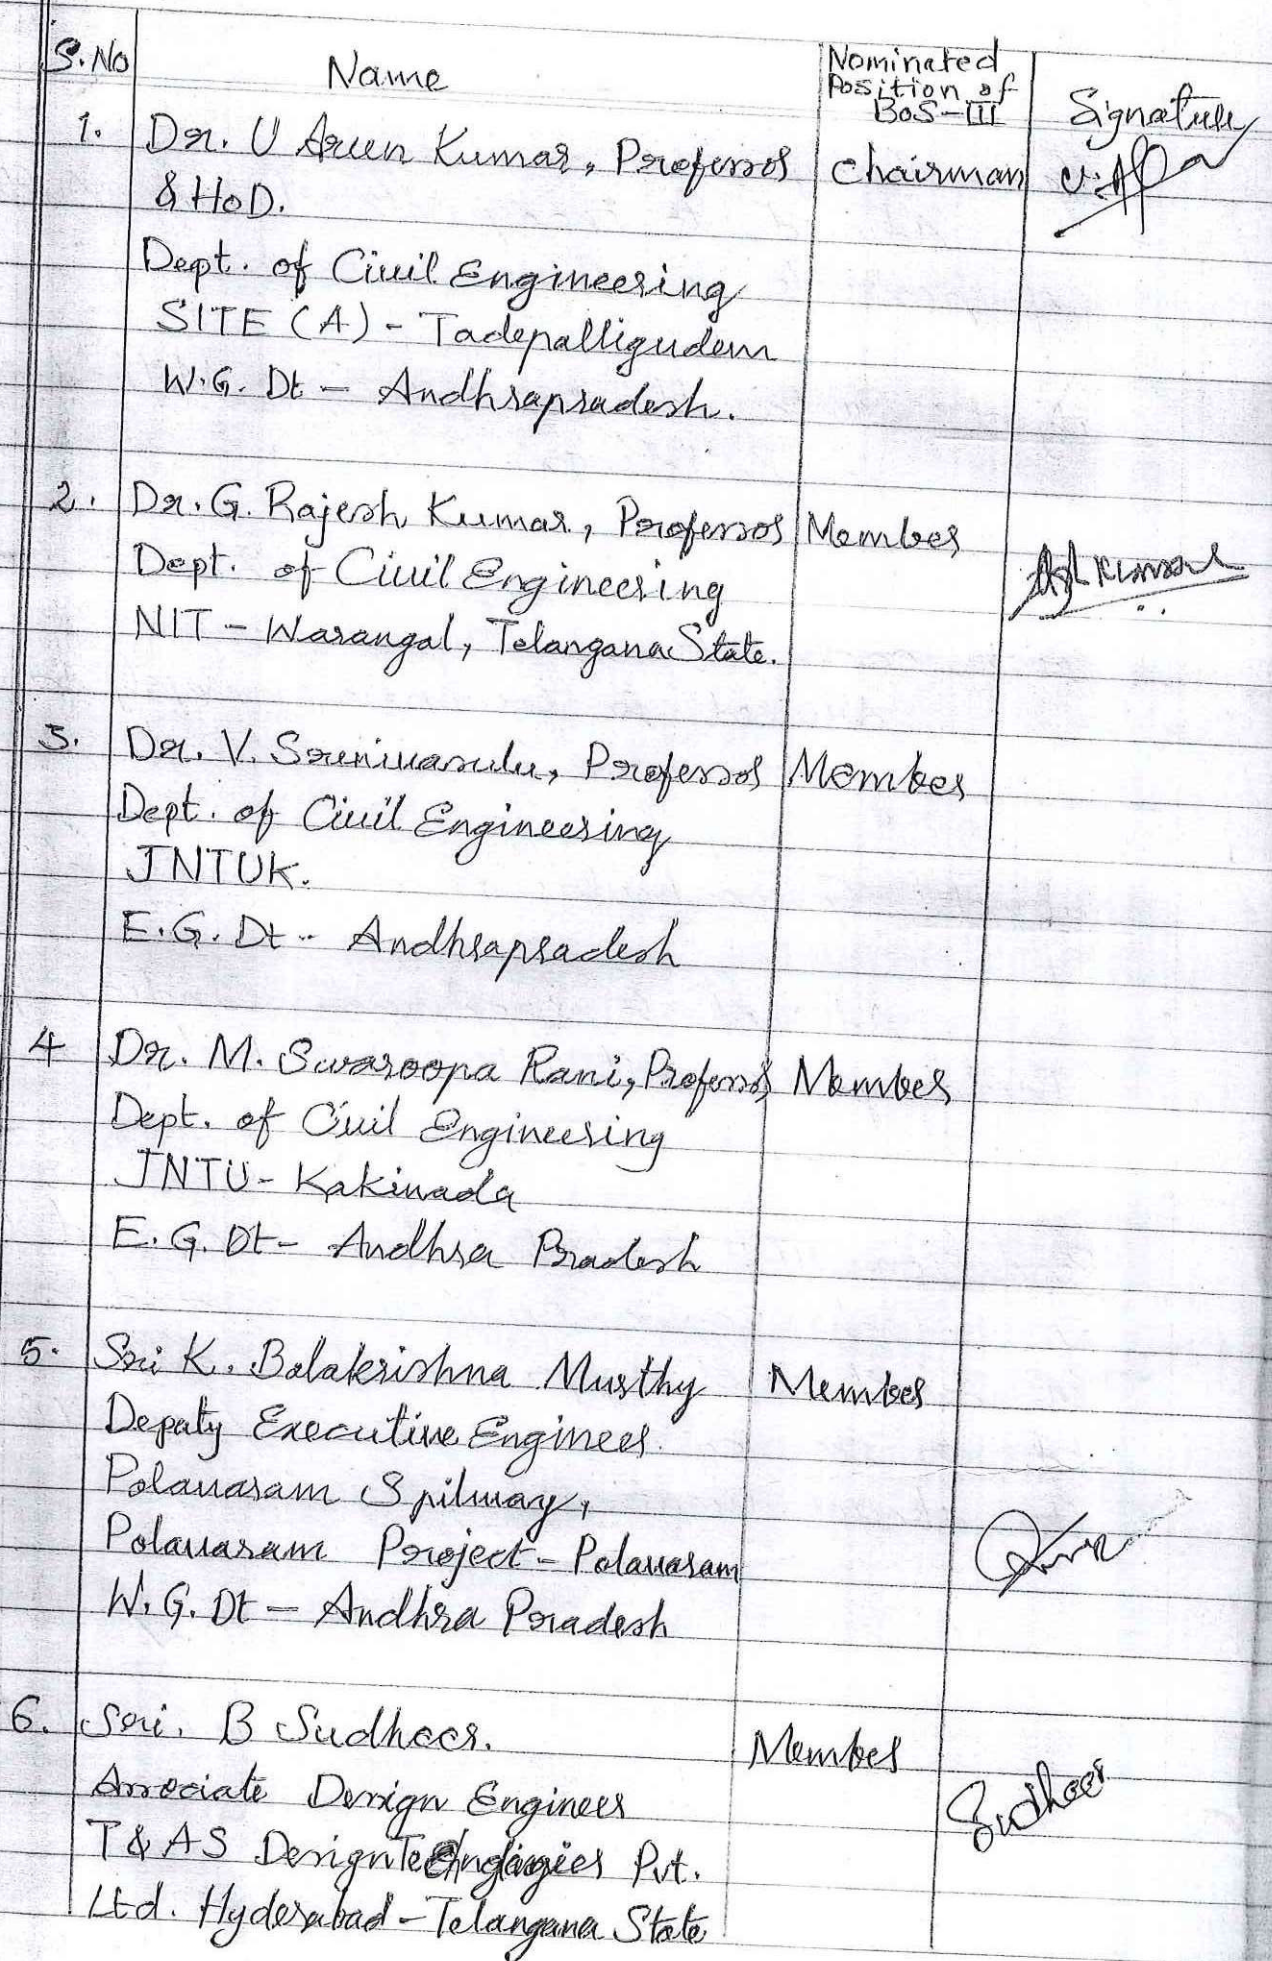 S.No Name Nominated Position of BoS-III Signature
1. Dr. U Arun Kumar, Professor Chairman
& HoD.
Dept. of Civil Engineering
SITE (A) - Tadepalligudem
W.G. Dt - Andhrapradesh.
2. Dr. G. Rajesh Kumar, Professor Member
Dept. of Civil Engineering
NIT - Warangal, Telangana State.
3. Dr. V. Srinivasulu, Professor Member
Dept. of Civil Engineering
JNTUK.
E.G. Dt - Andhrapradesh
4 Dr. M. Swaroopa Rani, Professor Member
Dept. of Civil Engineering
JNTU - Kakinada
E.G. Dt - Andhra Pradesh
5. Sri K. Balakrishna Murthy Member
Deputy Executive Engineer.
Polavaram Spilway,
Polavaram Project - Polavaram
W.G. Dt - Andhra Pradesh
6. Sri. B Sudheer. Member Sudheer
Associate Design Engineer
T & AS Design Technologies Pvt.
Ltd. Hyderabad - Telangana State